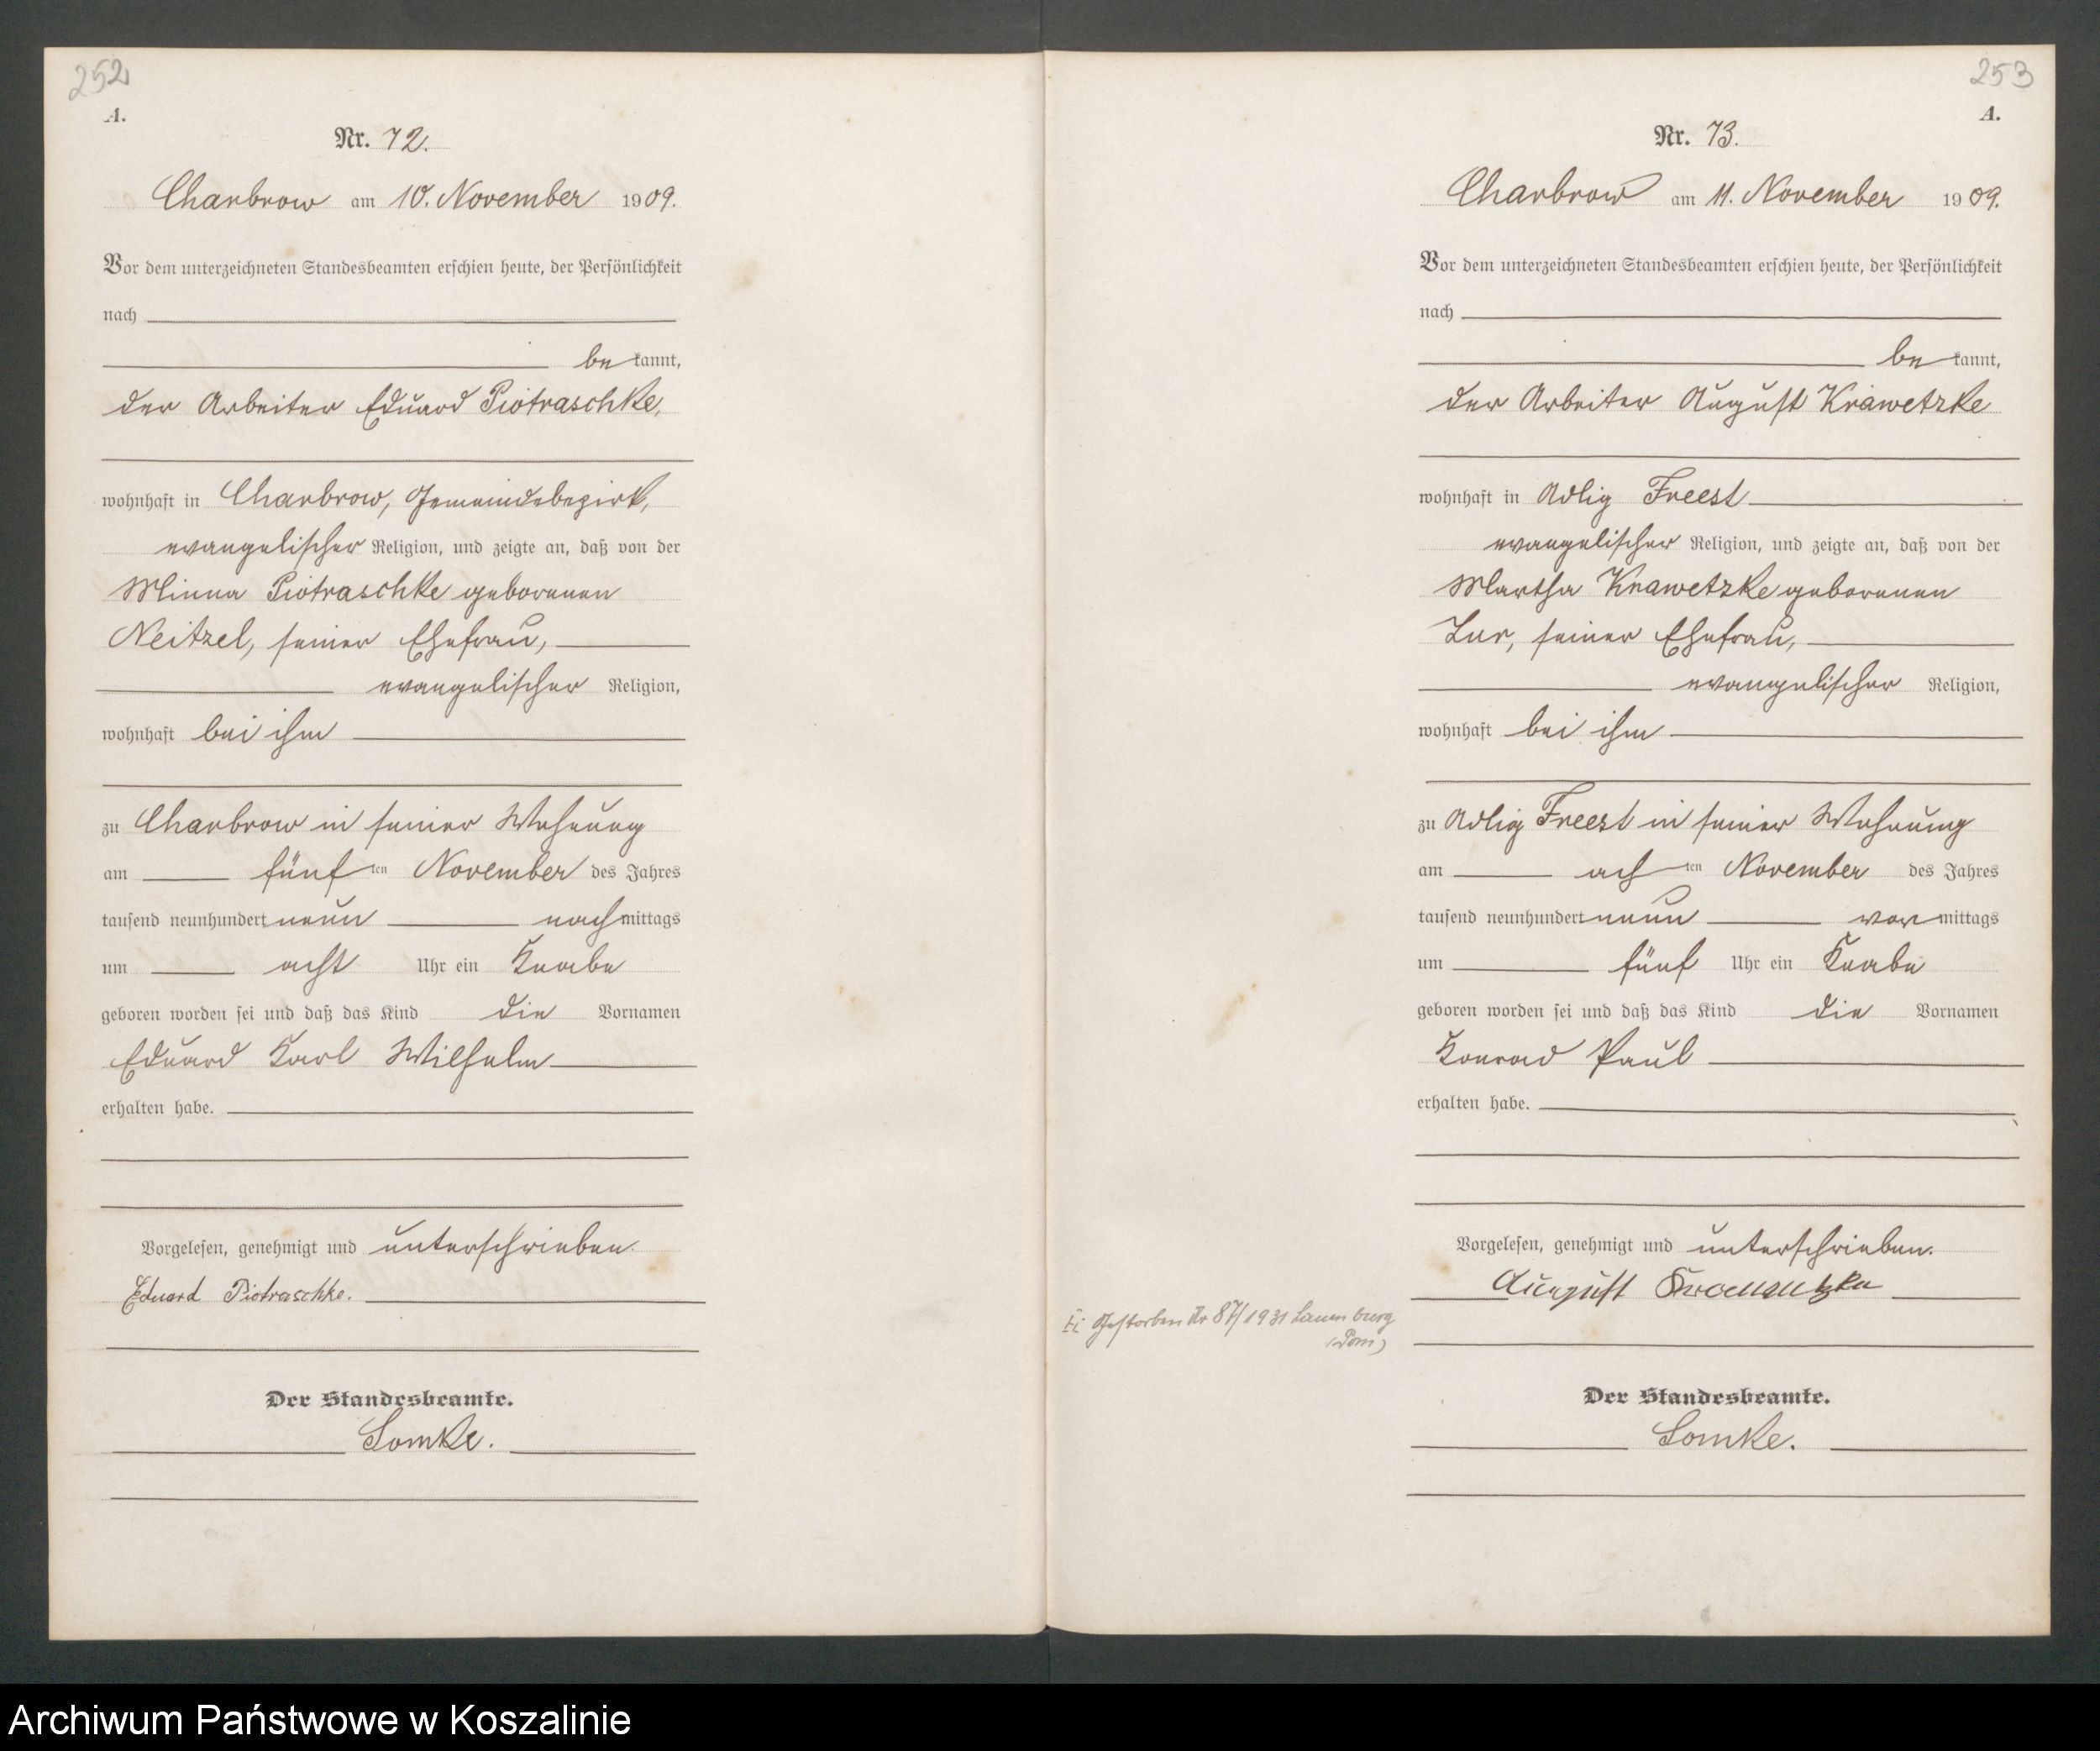 252
A.
Nr. 72.
Charbrow am 10. November 1909.
Vor dem unterzeichneten Standesbeamten erschien heute, der Persönlichkeit
nach
be kannt,
der Arbeiter Eduard Piotraschke,
wohnhaft in Charbrow, Gemeindebezirk,
evangelischer Religion, und zeigte an, daß von der
Minna Piotraschke geborenen
Neitzel, seiner Ehefrau,
evangelischer Religion,
wohnhaft bei ihm
zu Charbrow in seiner Wohnung
am fünf ten November des Jahres
tausend neunhundert neun nach mittags
um acht Uhr ein Knabe
geboren worden sei und daß das Kind die Vornamen
Eduard Karl Wilhelm
erhalten habe.
Vorgelesen, genehmigt und unterschrieben.
Eduard Piotraschke.
Der Standesbeamte.
Lomke.
253
A.
Nr. 73.
Charbrow am 11. November 1909.
Vor dem unterzeichneten Standesbeamten erschien heute, der Persönlichkeit
nach
be kannt,
der Arbeiter August Krawetzke
wohnhaft in Adlig Freest
evangelischer Religion, und zeigte an, daß von der
Martha Krawetzke geborenen
seiner Ehefrau,
evangelischer Religion,
wohnhaft bei ihm
zu Adlig Freest in seiner Wohnung
am ach ten November des Jahres
tausend neunhundert neun vor mittags
um fünf Uhr ein Knabe
geboren worden sei und daß das Kind die Vornamen
Konrad Paul
erhalten habe.
Vorgelesen, genehmigt und unterschrieben.
August Krawetzke
Gestorben Nr 87/1931 Lauenburg
(Pom)
Der Standesbeamte.
Lomke.
Archiwum Państwowe w Koszalinie